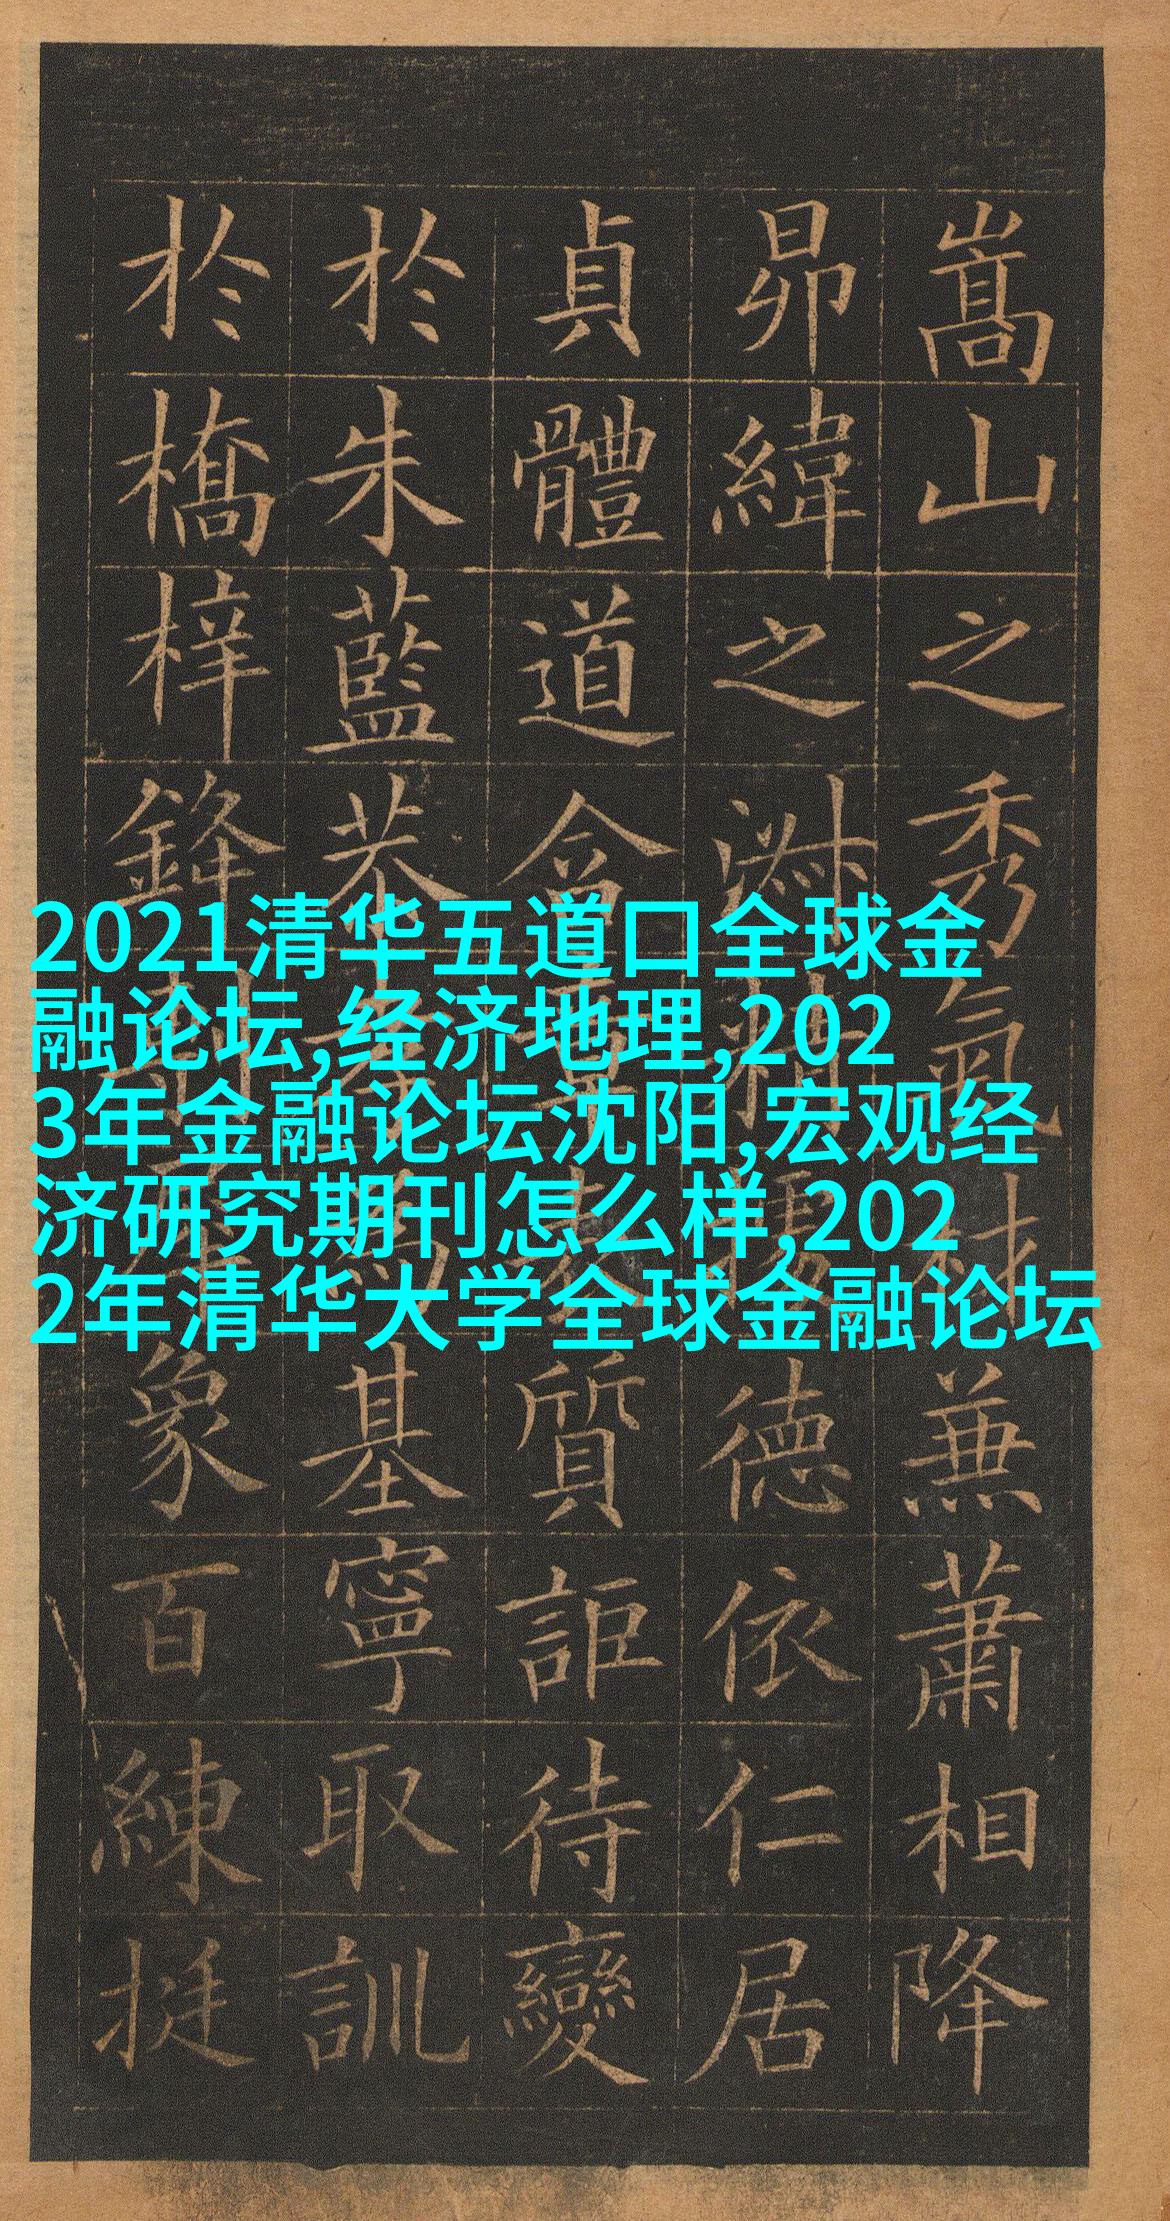 嵩山之秀氣材兼蕭相降
昴緯之淑精德依仁居
貞體道含章表質詎待變
於朱藍恭孝為基寧取訓
於橋梓鋒犀象百練挺
2021清华五道口全球金
融论坛,经济地理,202
3年金融论坛沈阳,宏观经
济研究期刊怎么样,202
2年清华大学全球金融论坛